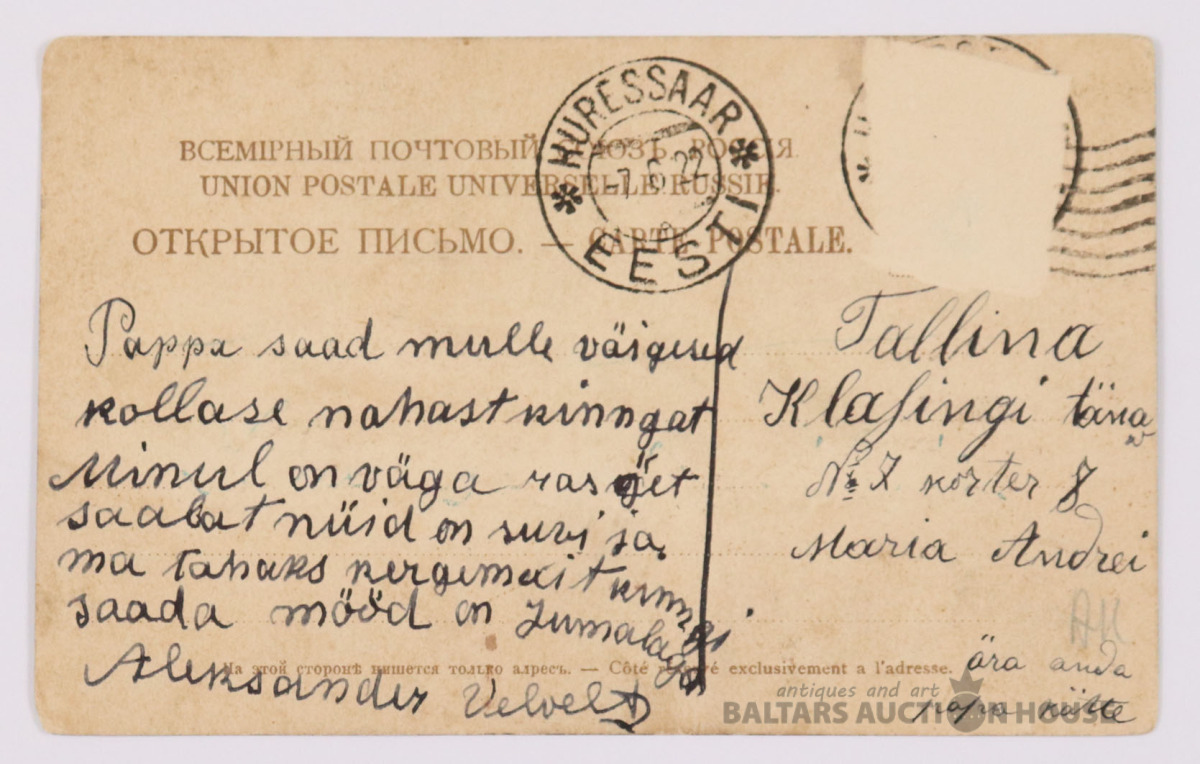 ВСЕМІРНЫЙ ПОЧТОВЫЙ СОЮЗЪ. РОССІЯ
UNION POSTALE UNIVERSELLE RUSSIE.
ОТКРЫТОЕ ПИСЬМО. — CARTE POSTALE.
* KURESSAAR *
-7. 8. 22
EESTI
Pappa saad mulle väigesed
kollase nahast kinngat
Minul on väga rasget
saabat nüid on suvi ja
ma tahaks kergemait kinngi
saada mööd on Jumalaga
Aleksander Velvelt
Tallina
Klasingi täna
№ 7 korter 8
Maria Andrei
AK
ära anda
papa kätte
На этой сторонѣ пишется только адресъ. — Côté réservé exclusivement a l'adresse.
antiques and art
BALTARS AUCTION HOUSE